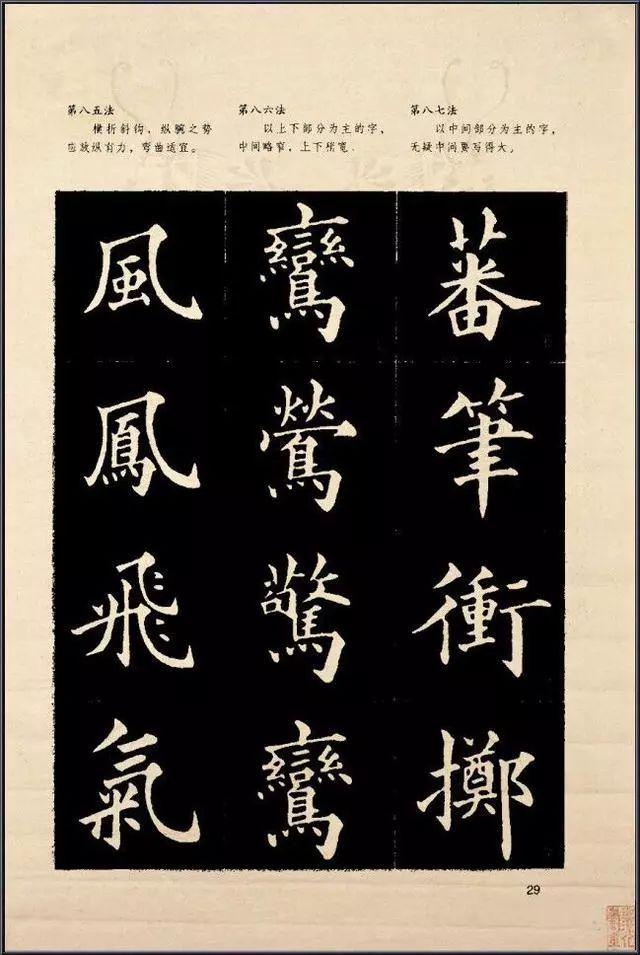 第八五法
横折斜钩，纵腕之势
应放纵有力，弯曲适宜。
第八六法
以上下部分为主的字，
中间略窄，上下稍宽．
第八七法
以中间部分为主的字，
无疑中间要写得大。
風鳳飛氣
鸞鶯驚鸞
蕃筆衝擲
29